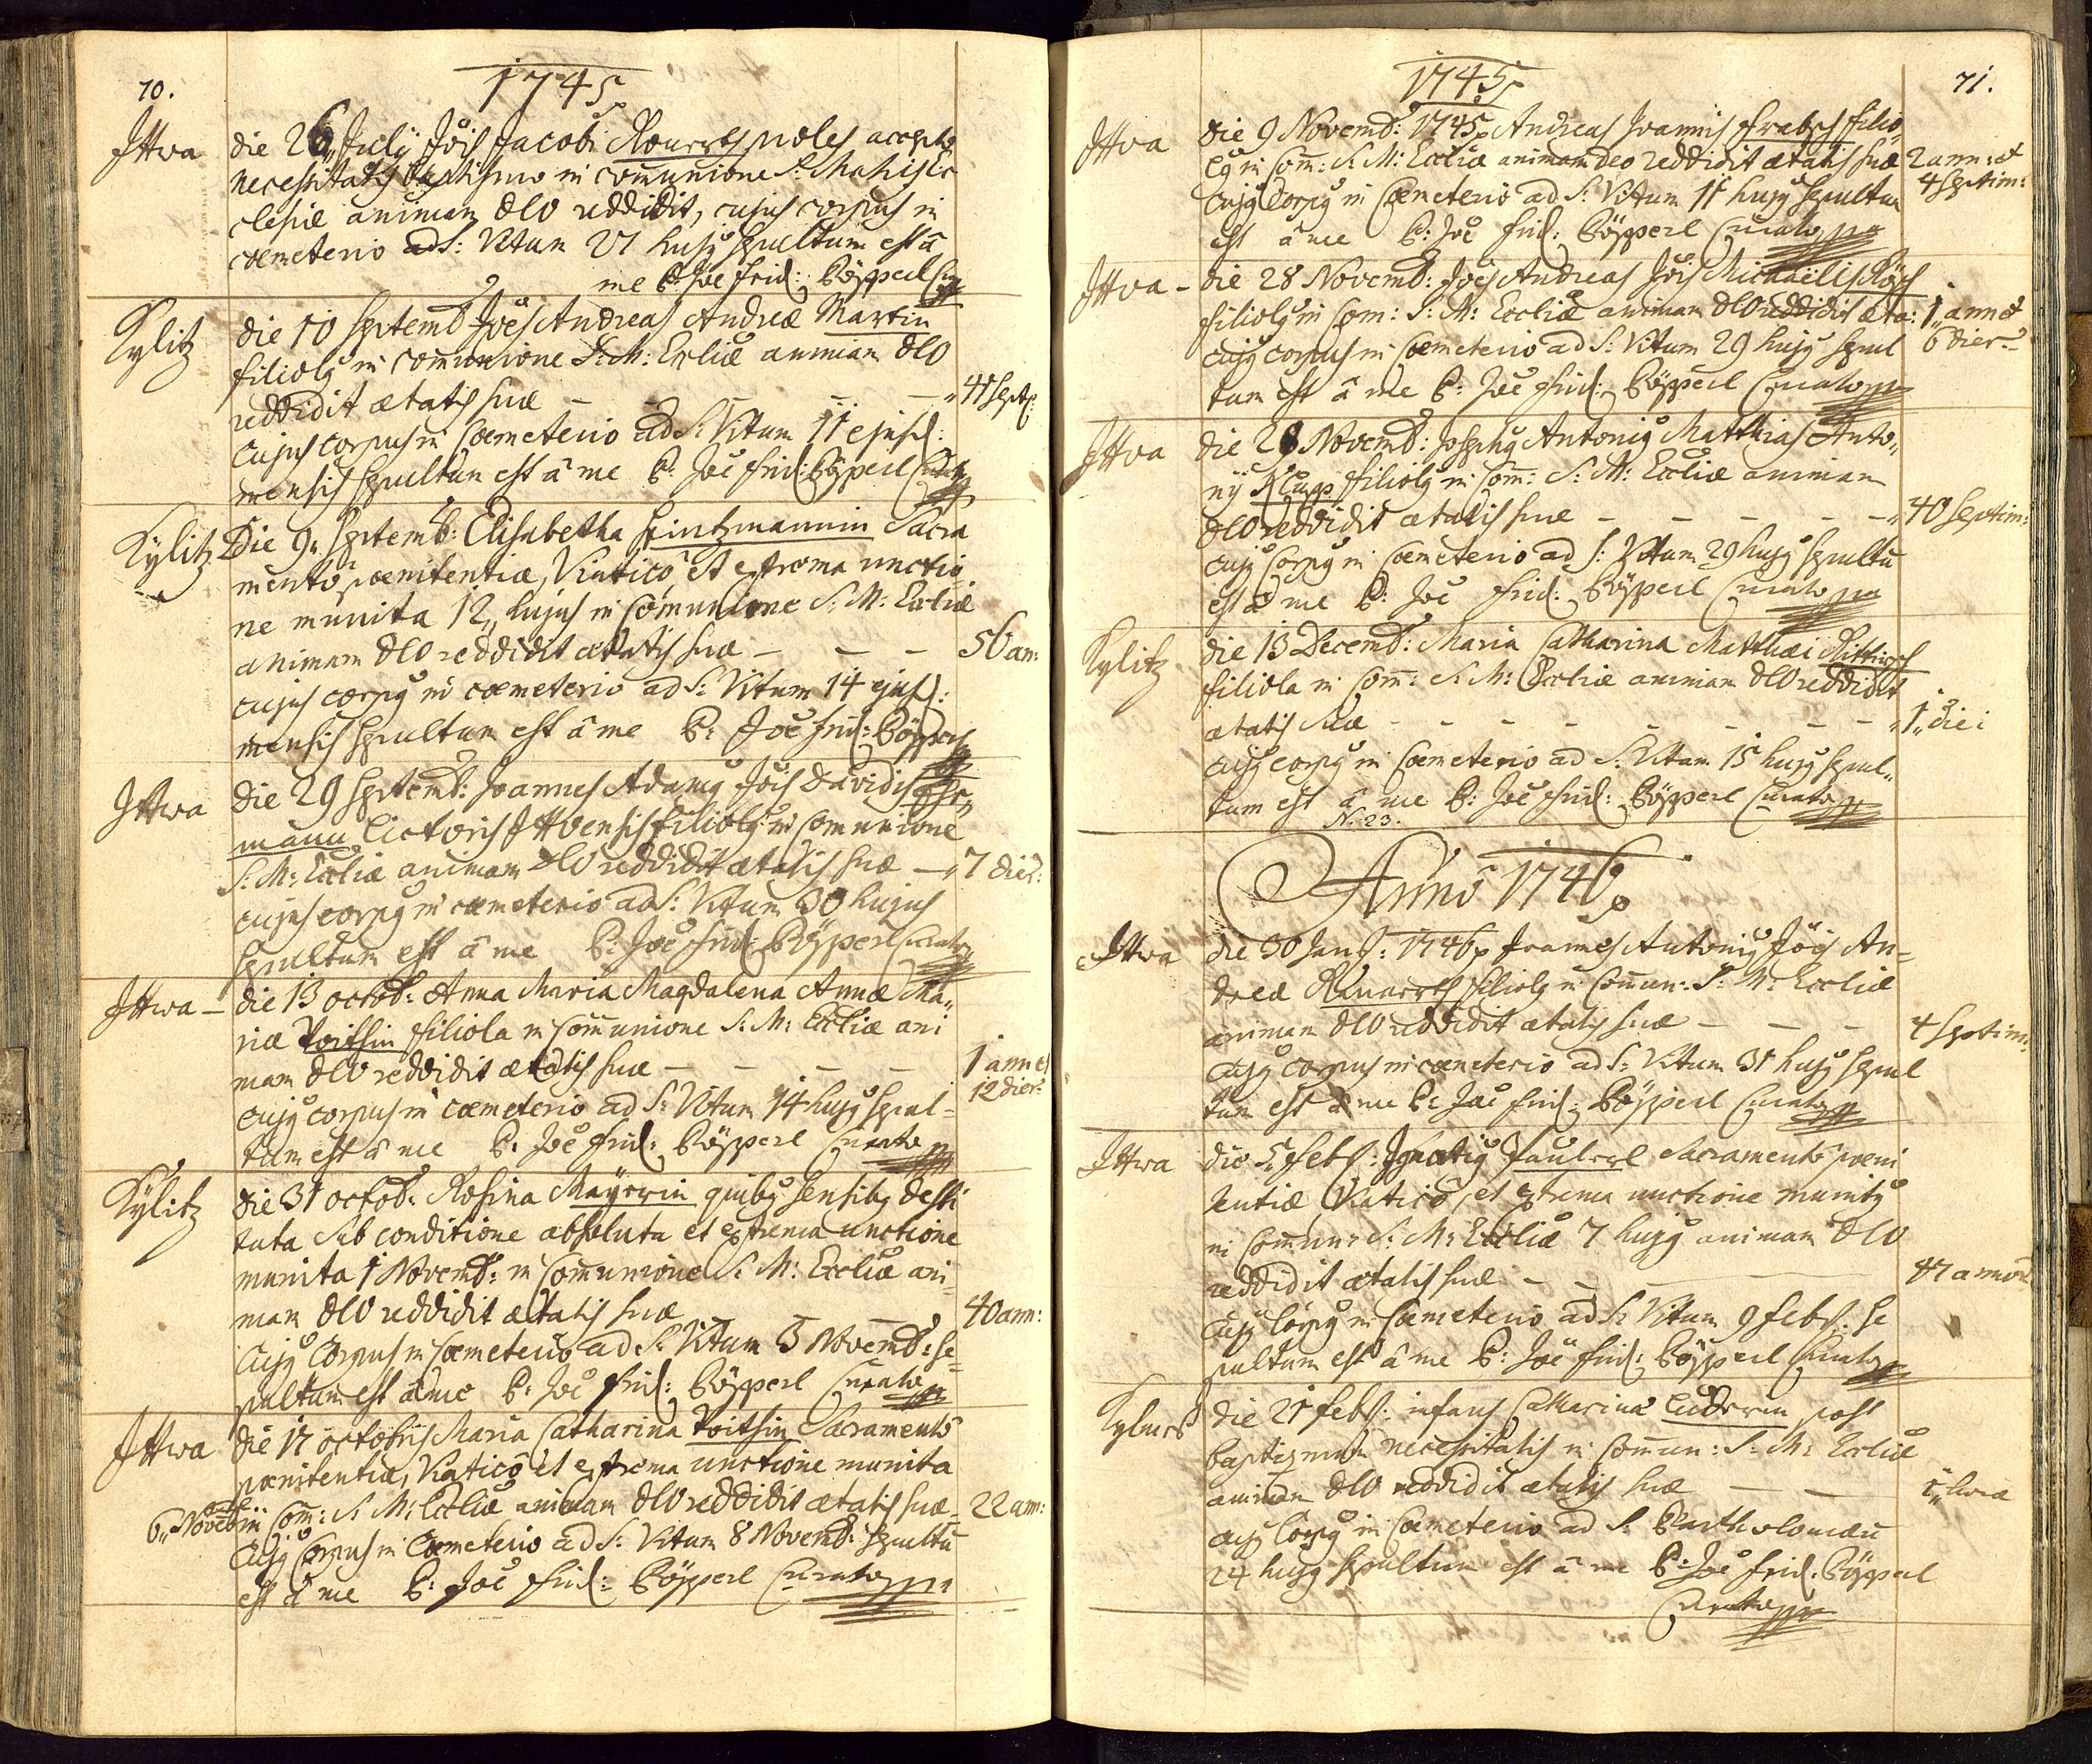 70.
1745
Ittwa
die 26 July Jois Jacobi proles accepto
necessitatis baptismo in communione S: Matris Ec
clesiæ animam DEO reddidit, cujus corpus in
cœmeterio ad S: Vitum 27 hujus sepultum est â
me P: Joe Frid: Böpperl Cur
Kylitz
die 10 Septemb: Joes Andreas Andreæ Martin
filiolg in communione S: M: Eccliæ animam DEO
reddidit ætatis suæ — — — — — 41 sept:
cujus corpus in Cœmeterio ad S: Vitum 11 ejusd:
mensis sepultum est â me P: Joe Frid: Böpperl Curato
Kÿlitz
Die 9 Septemb: Elisabetha Hintzmannin Sacra
mento pœnitentiæ, Viatico et extrema unctio
ne munita 12 hujus in Communione S: M: Eccliæ
animam DEO reddidit ætatis suæ — — — 56 an:
cujus corpg in cœmeterio ad S: Vitum 14 ejusd:
mensis sepultum est â me P: Joe Frid: Böpperl
Ittwa
die 29 Septemb: Joannes Adamg Jois Davidis
mann lictoris Ittvensis filiolg in Comunione
S: M: Eccliæ animam DEO reddidit ætatis suæ — 7 dier:
cujus corpg in cœmeterio ad S: Vitum 30 hujus
sepultum est â me P: Joe Frid: Böpperl Curato
Ittwa —
die 13 octob: Anna Maria Magdalena Annæ Ma-
riæ Voitsin filiola in Communione S: M: Eccliæ ani
mam DEO reddidit ætatis suæ — — — — 1 ann et
12 dier:
cujg corpus in cœmeterio ad S: Vitum 14 hujg sepul-
tum est â me P: Joe Frid: Böpperl Curato
Kÿlitz
die 31 octob: Rosina Maÿerin quibg sensibg desti
tuta sub conditione absoluta et extrema unctione
munita 1 Novemb: in Communione S: M: Eccliæ ani
mam DEO reddidit ætatis suæ 40 ann:
Cujg Corpus in Cœmeterio ad S: Vitum 3 Novemb: se-
pultum est â me P: Joe Frid: Böpperl Curato
Ittwa
die 17 octobris Maria Catharina Voitsin Sacramento
pœnitentiæ, Viatico et extrema unctione munita
6 Novemb in Com: S: M: Eccliæ animam DEO reddidit ætatis suæ - 22 ann:
Cujg Corpus in Cœmeterio ad S: Vitum 8 Novemb: sepultu
est â me P: Joe Frid: Böpperl Curato
71.
1745
Ittva
die 9 Novemb: 1745 Andreas Joannis Frabsch filio
lg in Com: S: M: Eccliæ animam deo reddidit ætatis suæ 2 ann: et
4 septim:
Cujg Corpg in Cœmeterio ad S: Vitum 11 hujg sepultum
est â me P: Joe Frid: Böpperl Curato
Ittva -
die 28 Novemb: Joes Andreas Jois Michaelis
filiolg in Com: S: M: Eccliæ animam DEO reddidit æta: 1 ann et
6 dier:
cujg corpus in Cœmeterio ad S: Vitum 29 hujg sepul
tum est â me P: Joe Frid: Böpperl Curato
Ittva
die 28 Novemb: Josephg Antonig Matthias Anto-
nÿ filiolg in Com: S: M: Eccliæ animam
DEO reddidit ætatis suæ — — — — — 40 septim:
cujg Corpg in Cœmeterio ad S: Vitum 29 hujg sepultu
est â me P: Joe Frid: Böpperl Curato
Kylitz
die 13 Decemb: Maria Catharina Matthæi
filiola in Com: S: M: Eccliæ animam DEO reddidit
ætatis suæ — — — — — — — — 1 diei
cujg corpg in Cœmeterio ad S: Vitum 15 hujg sepul-
tum est â me P: Joe Frid: Böpperl Curato
N: 23.
Anno 1746
Ittwa
die 30 Jan: 1746 Joannes Antonig Jois An-
dreæ filiolg in Commun: S: M: Eccliæ
animam DEO reddidit ætatis suæ — — — 4 septim:
cujg corpus in cœmeterio ad S: Vitum 31 hujg sepul
tum est â me P: Joe Frid: Böpperl Curato
Ittwa
die 5 Feb: Ignatig Sacramento pœni
tentiæ Viatico, et extrema unctione munitg
in Commun: S: M: Eccliæ 7 hujg animam DEO
reddidit ætatis suæ — — — 47 annor
Cujg Corpg in Cœmeterio ad S: Vitum 9 feb: se
pultum est â me P: Joe Frid: Böpperl Curato
die 21 feb: infans Catharinæ post
baptizmum necessitatis in Commun: S: M: Eccliæ
animam DEO reddidit ætatis suæ — — 1 hora
cujg Corpg in Cœmeterio ad S: Bartholomæu
24 hujg sepultum est â me P: Joe Frid: Böpperl
Curato